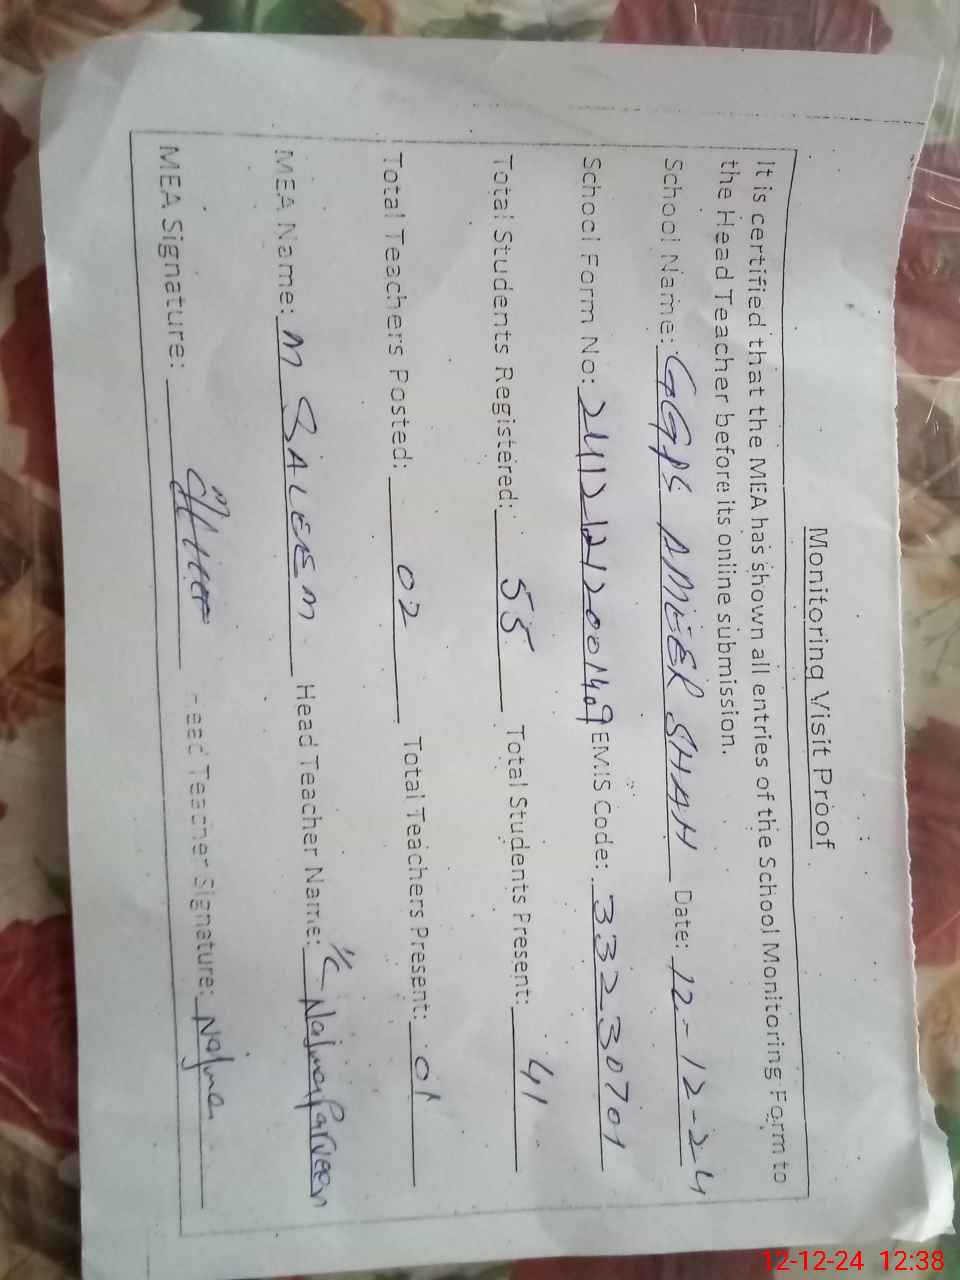 Monitoring Visit Proof
It is certified that the MEA has shown all entries of the School Monitoring Form to
the Head Teacher before its online submission.
School Name: GGPS AMEER SHAH Date: 12-12-24
School Form No: EMIS Code: 33230701
Total Students Registered: 55 Total Students Present: 41
Total Teachers Posted: 02 Total Teachers Present: 01
MEA Name: M SALEEM Head Teacher Name: I/C Najma Parveen
MEA Signature: Head Teacher Signature: Najma
12-12-24 12:38